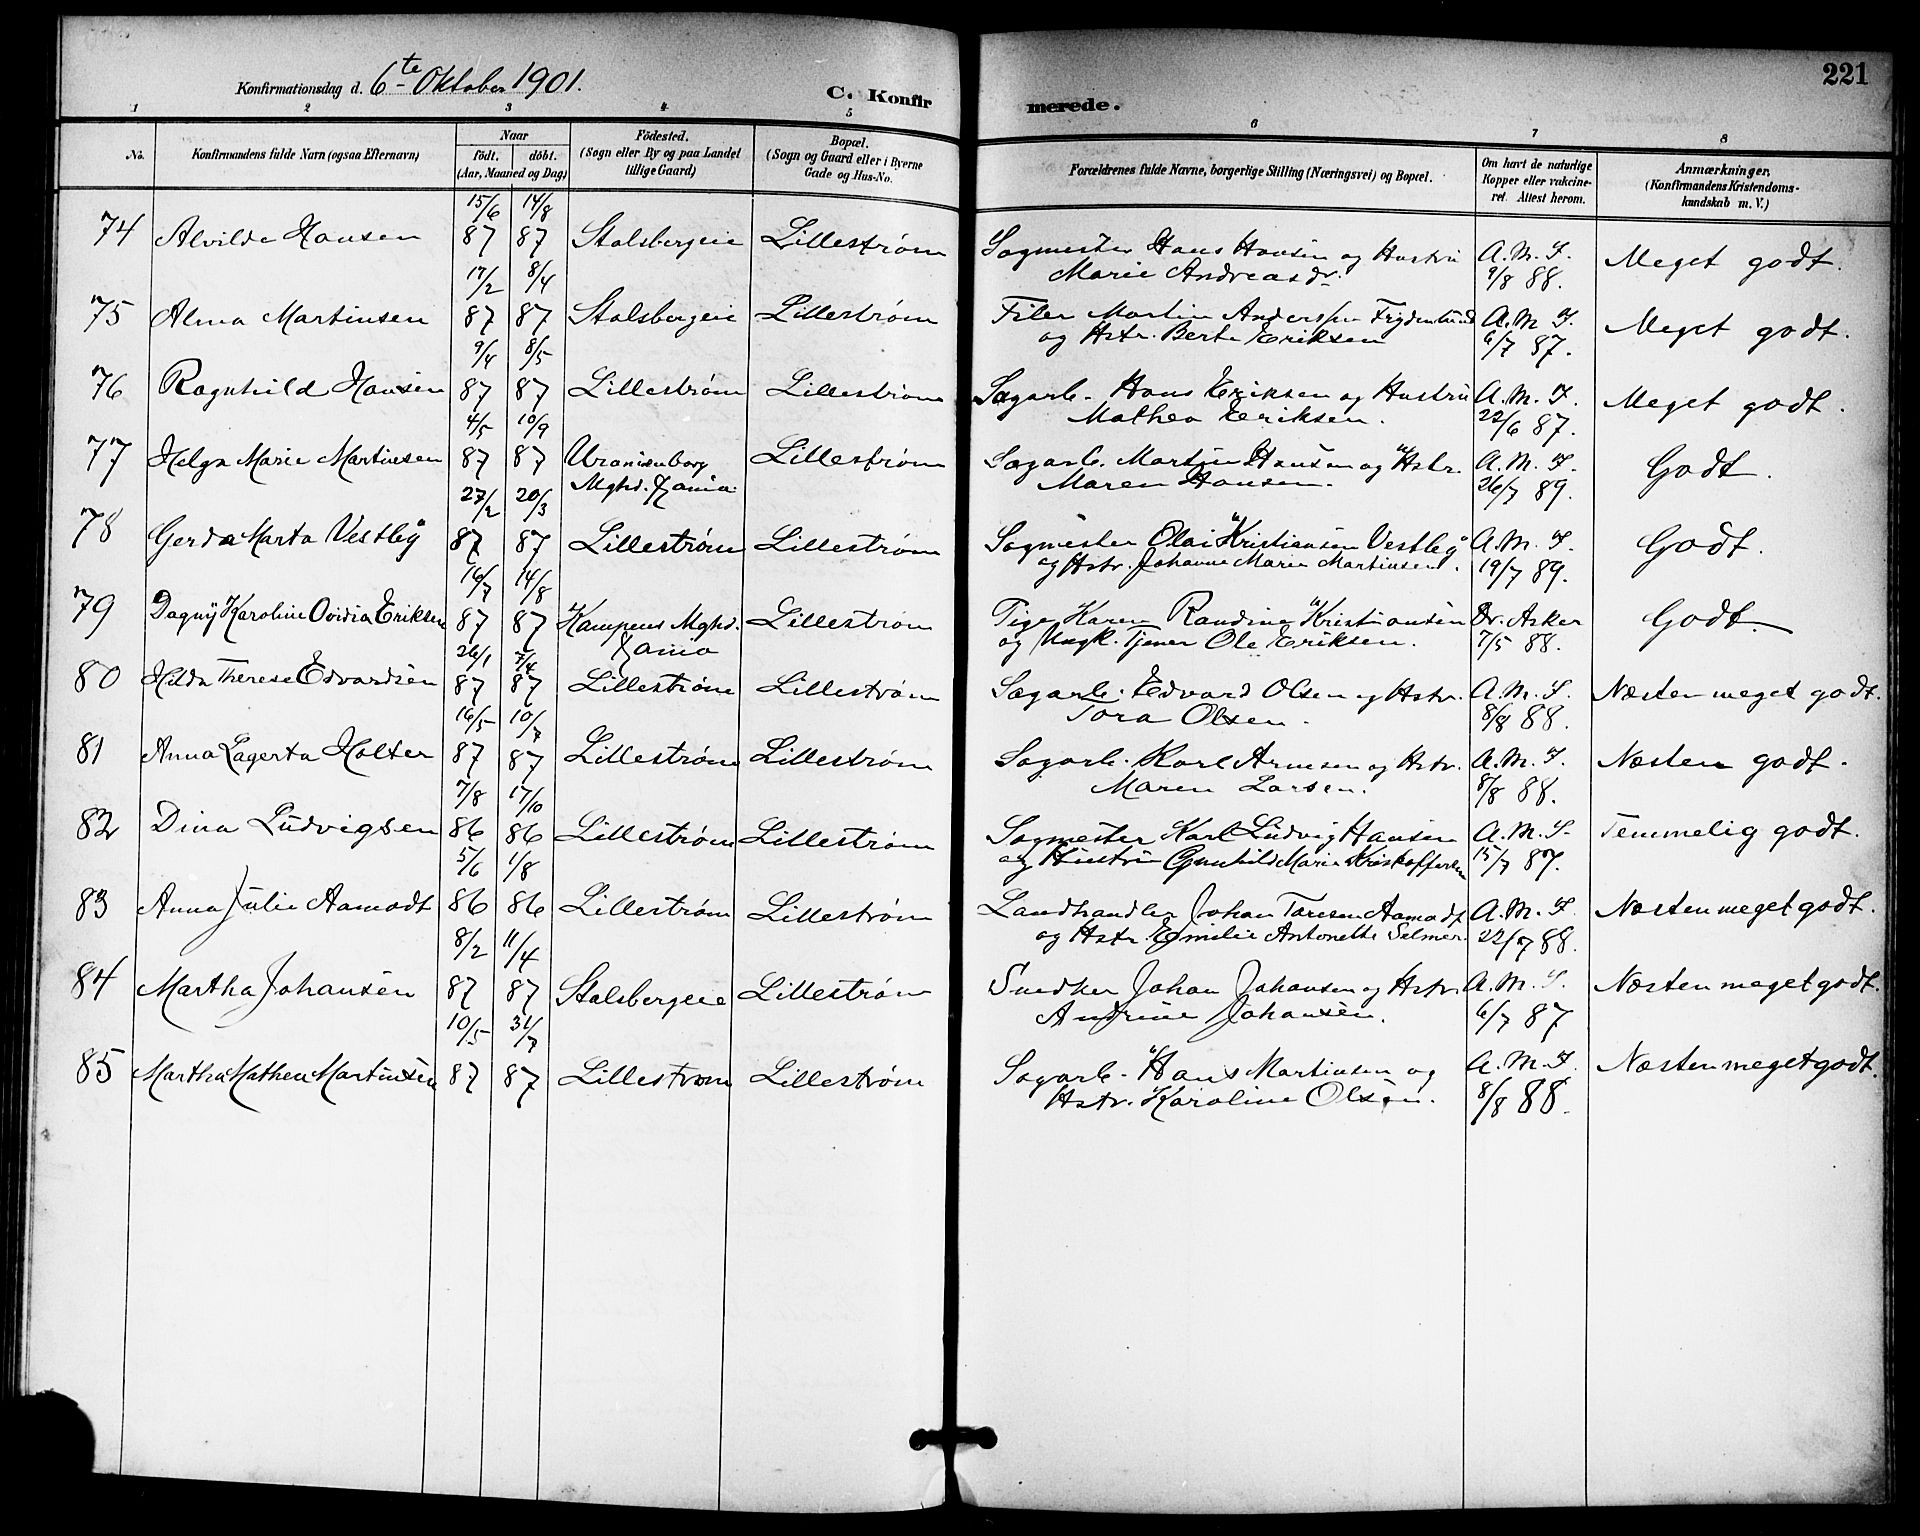 221
Konfirmationsdag d. 6te Oktober 1901. C. Konfirmerede.
1 2 3 4 5 6 7 8
No.
Konfirmandens fulde Navn (ogsaa Efternavn)
Naar
födt. döbt.
(Aar, Maaned og Dag)
Födested.
(Sogn eller By og paa Landet
tillige Gaard)
Bopæl.
(Sogn og Gaard eller i Byerne
Gade og Hus-No.
Forældrenes fulde Navne, borgerlige Stilling (Næringsvei) og Bopæl.
Om havt de naturlige
Kopper eller vakcine-
ret. Attest herom.
Anmærkninger,
(Konfirmandens Kristendoms-
kundskab m. V.)
15/6 14/8
74 Alvilde Hansen 87 87 Stalsbergeie Lillestrøm Sagmester Hans Hansen og Hustru A. M. F. Meget godt.
Marie Andreasdr. 9/8 88.
17/2 8/4
75 Alma Martinsen 87 87 Stalsbergeie Lillestrøm Filer Martin Andersen Frydenlund A. M. F. Meget godt.
og Hstr. Berte Eriksen 6/7 87.
9/4 8/5
76 Ragnhild Hansen 87 87 Lillestrøm Lillestrøm Sagarb. Hans Eriksen og Hustru A. M. F. Meget godt.
Mathea Eriksen. 22/6 87.
4/5 10/9
77 Helga Marie Martinsen 87 87 Uranienborg Lillestrøm Sagarb. Martin Hansen og Hstr. A. M. F. Godt.
Mghd. Kania. Maren Hansen. 26/7 89.
27/2 20/3
78 Gerda Marta Vestby 87 87 Lillestrøm Lillestrøm Sagmester Olai Kristiansen Vestby A. M. F. Godt.
og Hstr. Johanne Marie Martinsen. 19/7 89.
16/7 14/8
79 Dagny Karoline Ovidia Eriksen 87 87 Kampens Mghd. Lillestrøm Pige Karen Randine Kristiansen Dr. Asker Godt.
Kania og Ungk. Tjener Ole Eriksen. 7/5 88.
26/1 7/4
80 Hilda Therese Edvardsen 87 87 Lillestrøm Lillestrøm Sagarb. Edvard Olsen og Hstr. A. M. F. Næsten meget godt.
Tora Olsen. 8/8 88.
16/5 10/7
81 Anna Lagerta Holter 87 87 Lillestrøm Lillestrøm Sagarb. Karl Arnesen og Hstr. A. M. F. Næsten godt.
Maren Larsen. 8/8 88.
7/8 17/10
82 Dina Ludvigsen 86 86 Lillestrøm Lillestrøm Sagmester Karl Ludvig Hansen A. M. F. Temmelig godt.
og Hustru Gunhild Marie Kristoffersen 15/7 87.
5/6 1/8
83 Anna Julie Aamodt 86 86 Lillestrøm Lillestrøm Landhandler Johan Toresen Aamodt A. M. F. Næsten meget godt.
og Hstr. Emilie Antonette Selmer. 22/7 88.
8/2 11/4
84 Martha Johansen 87 87 Stalsbergeie Lillestrøm Snedker Johan Johansen og Hstr. A. M. F. Næsten meget godt.
Andrine Johansen. 6/7 87
10/5 31/7
85 Martha Mathea Martinsen 87 87 Lillestrøm Lillestrøm Sagarb. Hans Martinsen og A. M. F. Næsten meget godt.
Hstr. Karoline Olsen. 8/8 88.